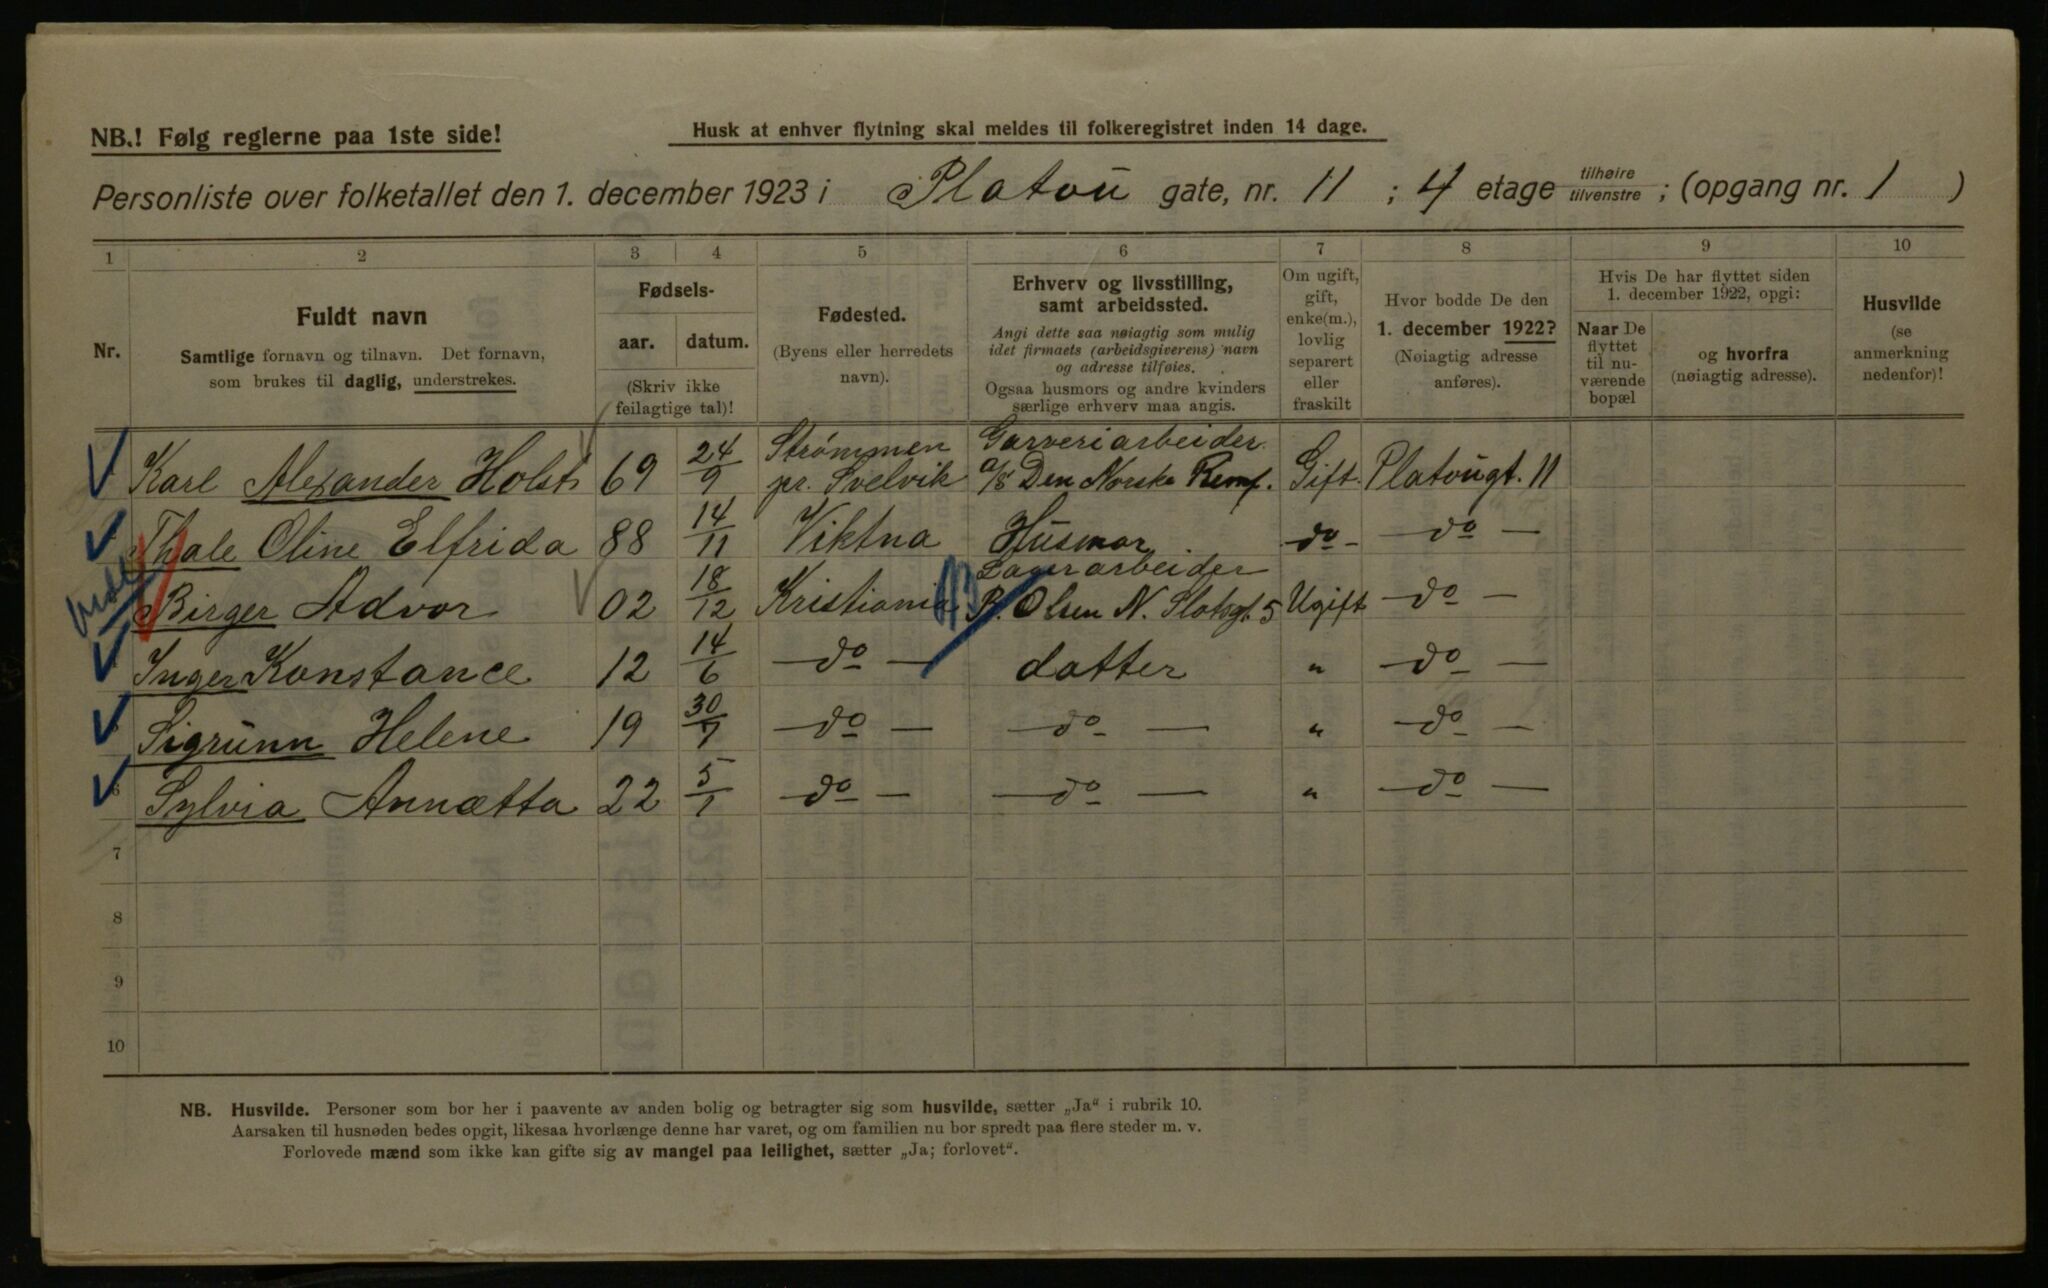 NB.! Følg reglerne paa 1ste side!
Husk at enhver flytning skal meldes til folkeregistret inden 14 dage.
Personliste over folketallet den 1. december 1923 i Platou gate, nr. 11 ; 4 etage tilhøire tilvenstre ; (opgang nr. 1 )
1 2 3 4 5 6 7 8 9 10
Nr.
Fuldt navn
Samtlige fornavn og tilnavn. Det fornavn,
som brukes til daglig, understrekes.
Fødsels-
aar. datum.
(Skriv ikke
feilagtige tal)!
Fødested.
(Byens eller herredets
navn).
Erhverv og livsstilling,
samt arbeidssted.
Angi dette saa nøiagtig som mulig
idet firmaets (arbeidsgiverens) navn
og adresse tilføies.
Ogsaa husmors og andre kvinders
særlige erhverv maa angis.
Om ugift,
gift,
enke(m.),
lovlig
separert
eller
fraskilt
Hvor bodde De den
1. december 1922?
(Nøiagtig adresse
anføres).
Hvis De har flyttet siden
1. december 1922, opgi:
Naar De
flyttet
til nu-
værende
bopæl
og hvorfra
(nøiagtig adresse).
Husvilde
(se
anmerkning
nedenfor)!
Karl Alexander Holst 69 24/9 Strømmen pr. Svelvik Garveriarbeider A/S Den Norske Remf. Gift Platougt. 11
Thale Oline Elfrida 88 14/11 Viktna Husmor do - do -
Birger Advor 02 18/12 Kristiania Lagerarbeider P. Olsen N. Slotsgt. 5 Ugift do -
Inger Konstance 12 14/6 - do - datter " - do -
Sigrunn Helene 19 30/7 - do - - do - " - do -
6 Sylvia Annætta 22 5/1 - do - - do - " - do -
7
8
9
10
NB. Husvilde. Personer som bor her i paavente av anden bolig og betragter sig som husvilde, sætter „Ja“ i rubrik 10.
Aarsaken til husnøden bedes opgit, likesaa hvorlænge denne har varet, og om familien nu bor spredt paa flere steder m. v.
Forlovede mænd som ikke kan gifte sig av mangel paa leilighet, sætter „Ja; forlovet“.